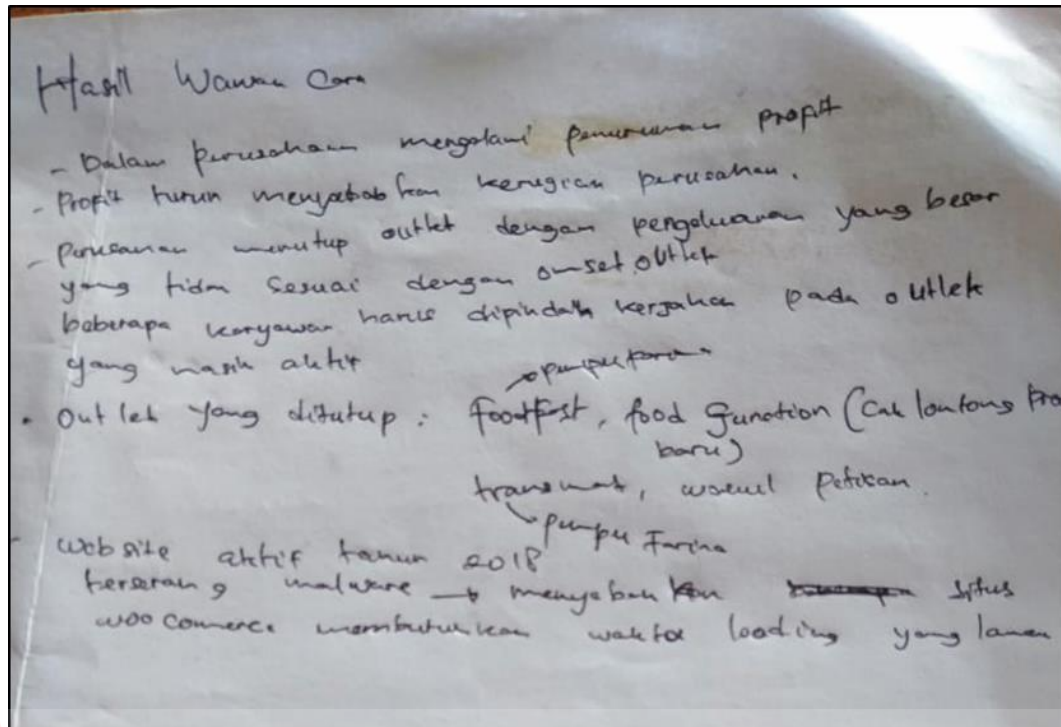 Hasil Wawan Cara
- Dalam perusahaan mengalami penurunan profit
- Profit turun menyebabkan kerugian perusahan.
- perusahan menutup outlet dengan pengeluaran yang besar
yang tidak sesuai dengan omset outlet
beberapa karyawan harus dipindah kerjakan pada outlet
yang masih aktif
• Outlet yang ditutup : foodfest, food junction (Cak lontong
baru)
transmart,
Website aktif tahun 2018
terserang malware → menyebabkan situs
woo commerce membutuhkan waktu loading yang lama